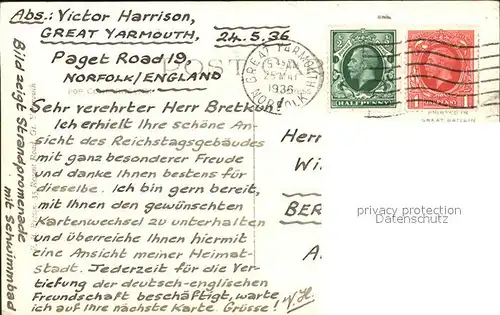 Abs.: Victor Harrison,
GREAT YARMOUTH, 24.5.36
Paget Road 19,
NORFOLK/ENGLAND
POST
Sehr verehrter Herr Bretkun!
Ich erhielt Ihre schöne An-
sicht des Reichstagsgebäudes
mit ganz besonderer Freude
und danke Ihnen bestens für
dieselbe. Ich bin gern bereit,
mit Ihnen den gewünschten
Kartenwechsel zu unterhalten
und überreiche Ihnen hiermit
eine Ansicht meiner Heimat-
stadt. Jederzeit für die Ver-
tiefung der deutsch-englischen
Freundschaft beschäftigt, warte
ich auf Ihre nächste Karte. Grüsse!
V.H.
Bild zeigt Strandpromenade
mit Schwimmbad
GREAT YARMOUTH
1936
NORFOLK
HALFPENNY
PENNY
PRINTED IN
GREAT BRITAIN
Herr
Wi
BER
A
copyright protected
Ansichtskarten-Center